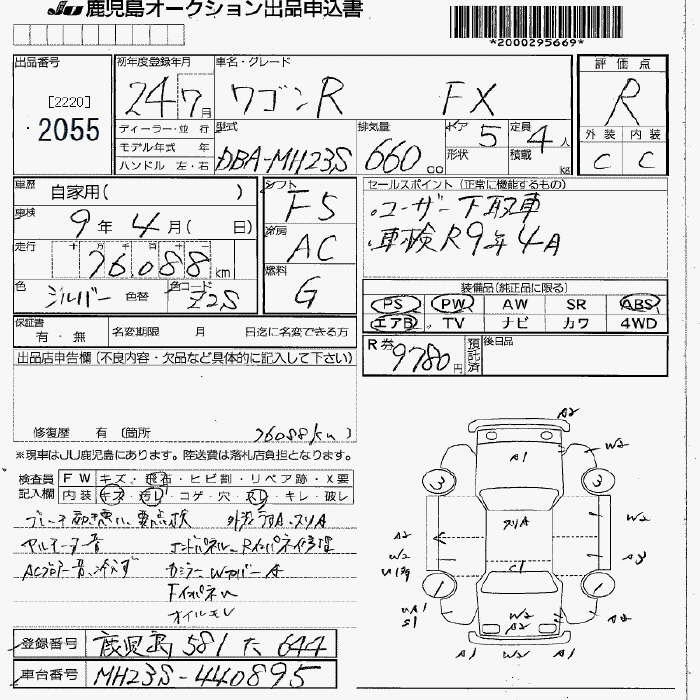 JU 鹿児島オークション出品申込書
*2000295669*
出品番号
[2220]
2055
初年度登録年月
24 7月
車名・グレード
ワゴンR FX
評価点
R
外装 内装
C C
ディーラー・並 行
モデル年式 年
ハンドル 左・右
型式
DBA-MH23S
排気量
660 cc
ドア 5
形状
定員 4人
積載 kg
車歴 自家用( )
車検 9年 4月( 日)
走行
十 万 千 百 十 一
76088 km
色 シルバー 色替
色コード Z2S
シフト F5
冷房 AC
燃料 G
セールスポイント (正常に機能するもの)
ユーザー下取車
車検R9年4月
装備品(純正品に限る)
PS PW AW SR ABS
エアB TV ナビ カワ 4WD
保証書 有・無
名変期限 月 日迄に名変できる方
R券 9780円
預託済
後日品
出品店申告欄(不良内容・欠品など具体的に記入して下さい)
修復歴 有 〔箇所 76088km 〕
※現車はJU鹿児島にあります。陸送費は落札店負担となります。
検査員記入欄
FW キズ・飛石・ヒビ割・リペア跡・X要
内装 キズ・汚レ・コゲ・穴・スレ・キレ・破レ
オイルモレ
登録番号 鹿児島 581 た 644
車台番号 MH23S-440895
A2
A1
W2
3
3
スリA
W2
A2
W2
A3
C1
1
1
UA1
S1
W2
A2
A2
A1
W2
A1